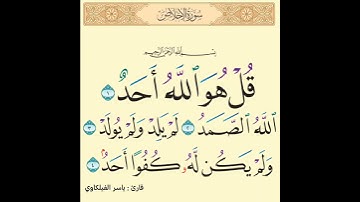 سورة الإخلاص
بسم الله الرحمن الرحيم
قُلْ هُوَ ٱللَّهُ أَحَدٌ ١
ٱللَّهُ ٱلصَّمَدُ ٢ لَمْ يَلِدْ وَلَمْ يُولَدْ ٣
وَلَمْ يَكُن لَّهُۥ كُفُوًا أَحَدٌۢ ٤
قارئ : ياسر الفيلكاوي